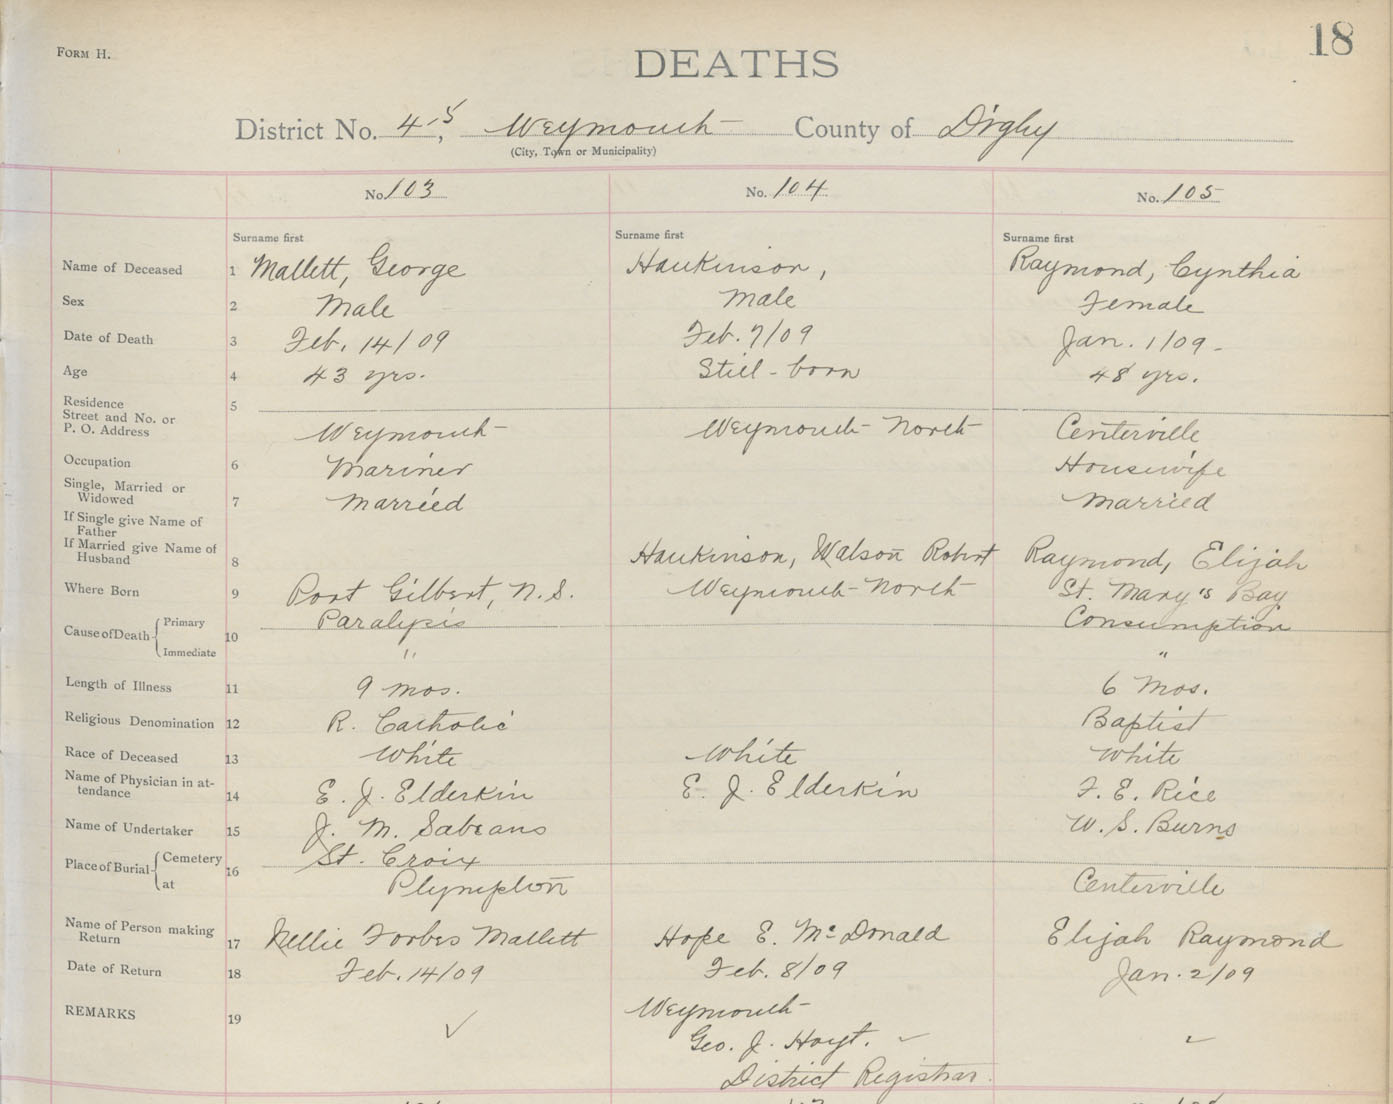 18
FORM H.
DEATHS
District No. 4-5, Weymouth County of Digby
(City, Town or Municipality)
No. 103 No. 104 No. 105
Surname first Surname first Surname first
Name of Deceased 1 Mallett, George Hankinson, Raymond, Cynthia
Sex 2 Male Male Female
Date of Death 3 Feb. 14/09 Feb. 7/09 Jan. 1/09 -
Age 4 43 yrs. Still-born 48 yrs.
Residence 5
Street and No. or
P. O. Address Weymouth Weymouth North Centerville
Occupation 6 Mariner Housewife
Single, Married or
Widowed 7 Married Married
If Single give Name of
Father
If Married give Name of
Husband 8 Hankinson, Watson Robert Raymond, Elijah
Where Born 9 Port Gilbert, N.S. Weymouth North St. Mary's Bay
Cause of Death Primary 10 Paralysis Consumption
Immediate " "
Length of Illness 11 9 mos. 6 Mos.
Religious Denomination 12 R. Catholic Baptist
Race of Deceased 13 White White White
Name of Physician in at-
tendance 14 E. J. Elderkin E. J. Elderkin F. E. Rice
Name of Undertaker 15 J. M. Sabeans W. S. Burns
Place of Burial Cemetery 16 St. Croix
at Plympton Centerville
Name of Person making
Return 17 Nellie Forbes Mallett Hope E. McDonald Elijah Raymond
Date of Return 18 Feb. 14/09 Feb. 8/09 Jan. 2/09
REMARKS 19 Weymouth
✓ Geo. J. Hoyt. ✓ ✓
District Registrar.